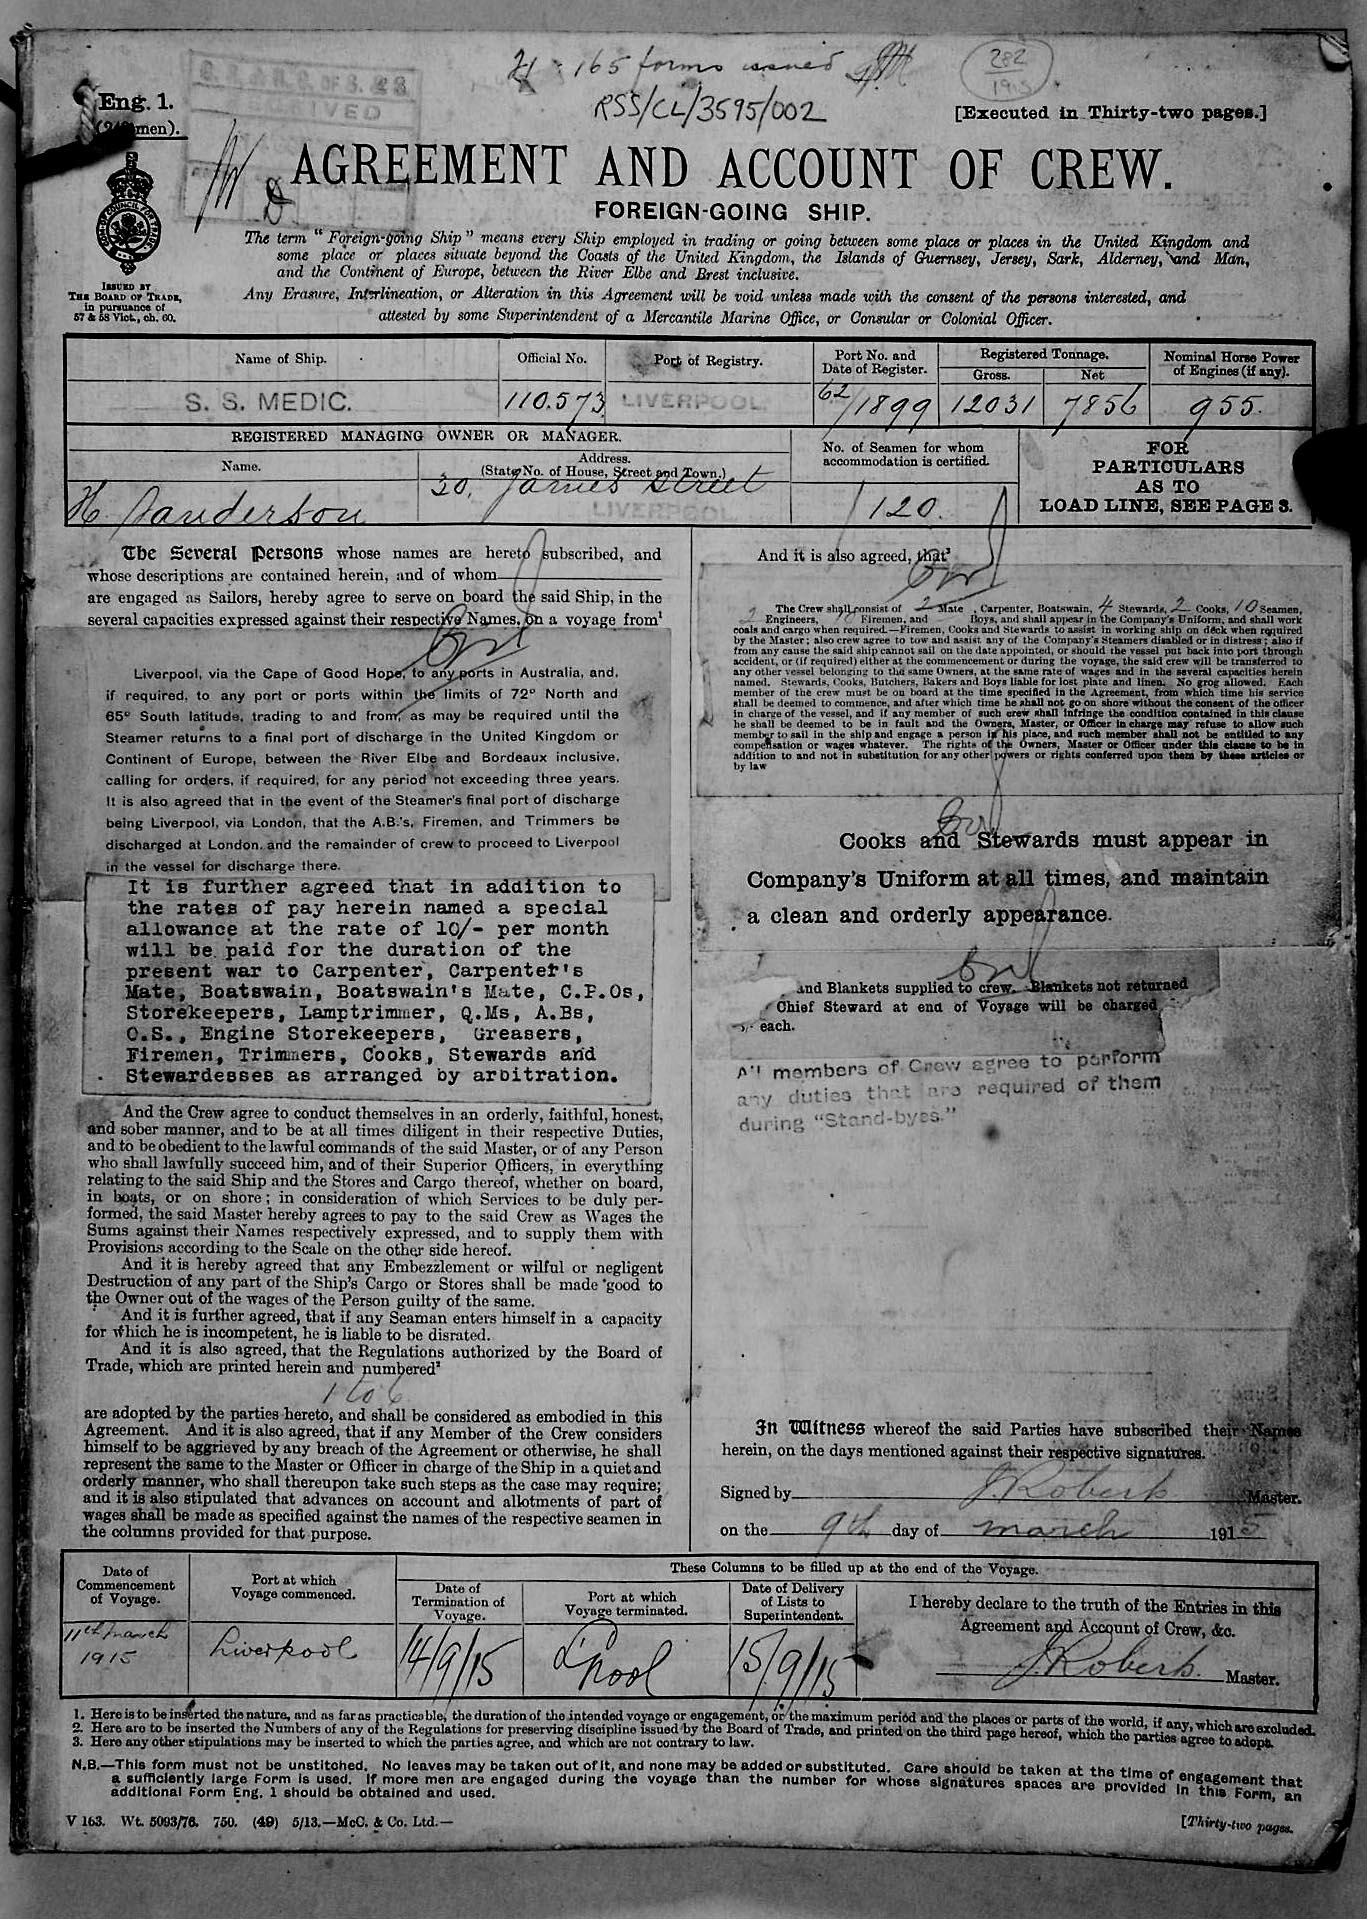 21 - 165 forms issued
282
1915
RECEIVED
RSS/CL/3595/002
Eng. 1.
[Executed in Thirty-two pages.]
men).
AGREEMENT AND ACCOUNT OF CREW.
FOREIGN-GOING SHIP.
The term "Foreign-going Ship" means every Ship employed in trading or going between some place or places in the United Kingdom and
some place or places situate beyond the Coasts of the United Kingdom, the Islands of Guernsey, Jersey, Sark, Alderney, and Man,
and the Continent of Europe, between the River Elbe and Brest inclusive.
Any Erasure, Interlineation, or Alteration in this Agreement will be void unless made with the consent of the persons interested, and
attested by some Superintendent of a Mercantile Marine Office, or Consular or Colonial Officer.
ISSUED BY
THE BOARD OF TRADE,
in pursuance of
57 & 58 Vict., ch. 60.
Name of Ship.
Official No.
Port of Registry.
Port No. and
Date of Register.
Registered Tonnage.
Gross.
Net
Nominal Horse Power
of Engines (if any).
S. S. MEDIC.
110.573
LIVERPOOL
62/1899
12031
7856
955.
REGISTERED MANAGING OWNER OR MANAGER.
Name.
Address.
(State No. of House, Street and Town.)
No. of Seamen for whom
accommodation is certified.
FOR
PARTICULARS
AS TO
LOAD LINE, SEE PAGE 3.
H Sanderson
30, James Street
LIVERPOOL
120.
The Several Persons whose names are hereto subscribed, and
whose descriptions are contained herein, and of whom
are engaged as Sailors, hereby agree to serve on board the said Ship, in the
several capacities expressed against their respective Names, on a voyage from¹
Liverpool, via the Cape of Good Hope, to any ports in Australia, and,
if required, to any port or ports within the limits of 72° North and
65° South latitude, trading to and from, as may be required until the
Steamer returns to a final port of discharge in the United Kingdom or
Continent of Europe, between the River Elbe and Bordeaux inclusive,
calling for orders, if required, for any period not exceeding three years.
It is also agreed that in the event of the Steamer's final port of discharge
being Liverpool, via London, that the A.B.'s, Firemen, and Trimmers be
discharged at London, and the remainder of crew to proceed to Liverpool
in the vessel for discharge there.
It is further agreed that in addition to
the rates of pay herein named a special
allowance at the rate of 10/- per month
will be paid for the duration of the
present war to Carpenter, Carpenter's
Mate, Boatswain, Boatswain's Mate, C.P.Os,
Storekeepers, Lamptrimmer, Q.Ms, A.Bs,
O.S., Engine Storekeepers, Greasers,
Firemen, Trimmers, Cooks, Stewards and
Stewardesses as arranged by arbitration.
And the Crew agree to conduct themselves in an orderly, faithful, honest,
and sober manner, and to be at all times diligent in their respective Duties,
and to be obedient to the lawful commands of the said Master, or of any Person
who shall lawfully succeed him, and of their Superior Officers, in everything
relating to the said Ship and the Stores and Cargo thereof, whether on board,
in boats, or on shore; in consideration of which Services to be duly per-
formed, the said Master hereby agrees to pay to the said Crew as Wages the
Sums against their Names respectively expressed, and to supply them with
Provisions according to the Scale on the other side hereof.
And it is hereby agreed that any Embezzlement or wilful or negligent
Destruction of any part of the Ship's Cargo or Stores shall be made good to
the Owner out of the wages of the Person guilty of the same.
And it is further agreed, that if any Seaman enters himself in a capacity
for which he is incompetent, he is liable to be disrated.
And it is also agreed, that the Regulations authorized by the Board of
Trade, which are printed herein and numbered²
1 to 6
are adopted by the parties hereto, and shall be considered as embodied in this
Agreement. And it is also agreed, that if any Member of the Crew considers
himself to be aggrieved by any breach of the Agreement or otherwise, he shall
represent the same to the Master or Officer in charge of the Ship in a quiet and
orderly manner, who shall thereupon take such steps as the case may require;
and it is also stipulated that advances on account and allotments of part of
wages shall be made as specified against the names of the respective seamen in
the columns provided for that purpose.
And it is also agreed, that³
The Crew shall consist of 2 Mate , Carpenter, Boatswain, 4 Stewards, 2 Cooks, 10 Seamen,
2 Engineers, 10 Firemen, and Boys, and shall appear in the Company's Uniform, and shall work
coals and cargo when required.—Firemen, Cooks and Stewards to assist in working ship on deck when required
by the Master; also crew agree to tow and assist any of the Company's Steamers disabled or in distress; also if
from any cause the said ship cannot sail on the date appointed, or should the vessel put back into port through
accident, or (if required) either at the commencement or during the voyage, the said crew will be transferred to
any other vessel belonging to the same Owners, at the same rate of wages and in the several capacities herein
named. Stewards, Cooks, Butchers, Bakers and Boys liable for lost plate and linen. No grog allowed. Each
member of the crew must be on board at the time specified in the Agreement, from which time his service
shall be deemed to commence, and after which time he shall not go on shore without the consent of the officer
in charge of the vessel, and if any member of such crew shall infringe the condition contained in this clause
he shall be deemed to be in fault and the Owners, Master, or Officer in charge may refuse to allow such
member to sail in the ship and engage a person in his place, and such member shall not be entitled to any
compensation or wages whatever. The rights of the Owners, Master or Officer under this clause to be in
addition to and not in substitution for any other powers or rights conferred upon them by these articles or
by law
Cooks and Stewards must appear in
Company's Uniform at all times, and maintain
a clean and orderly appearance.
and Blankets supplied to crew. Blankets not returned
Chief Steward at end of Voyage will be charged
each.
All members of Crew agree to perform
any duties that are required of them
during "Stand-byes."
In Witness whereof the said Parties have subscribed their Names
herein, on the days mentioned against their respective signatures.
Signed by J. Roberts Master.
on the 9th day of March 1915
Date of
Commencement
of Voyage.
Port at which
Voyage commenced.
These Columns to be filled up at the end of the Voyage.
Date of
Termination of
Voyage.
Port at which
Voyage terminated.
Date of Delivery
of Lists to
Superintendent.
I hereby declare to the truth of the Entries in this
Agreement and Account of Crew, &c.
11th March
1915
Liverpool
14/9/15
L'pool
15/9/15
J. Roberts. Master.
1. Here is to be inserted the nature, and as far as practicable, the duration of the intended voyage or engagement, or the maximum period and the places or parts of the world, if any, which are excluded.
2. Here are to be inserted the Numbers of any of the Regulations for preserving discipline issued by the Board of Trade, and printed on the third page hereof, which the parties agree to adopt.
3. Here any other stipulations may be inserted to which the parties agree, and which are not contrary to law.
N.B.—This form must not be unstitched. No leaves may be taken out of it, and none may be added or substituted. Care should be taken at the time of engagement that
a sufficiently large Form is used. If more men are engaged during the voyage than the number for whose signatures spaces are provided in this Form, an
additional Form Eng. 1 should be obtained and used.
V 163. Wt. 5093/76. 750. (49) 5/13.—McC. & Co. Ltd.—
[Thirty-two pages.